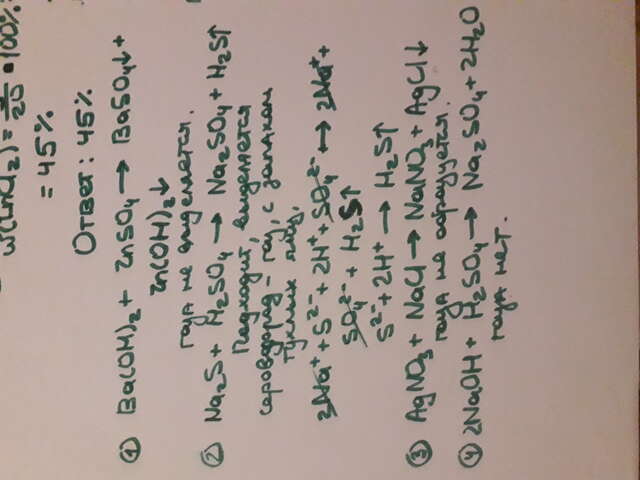 ω(ZnCl₂) = 9/20 • 100%
= 45%
Ответ: 45%
① Ba(OH)₂ + ZnSO₄ → BaSO₄↓ +
Zn(OH)₂↓
газа не выделяется.
② Na₂S + H₂SO₄ → Na₂SO₄ + H₂S↑
Подходит, выделяется
сероводород - газ, с запахом
тухлых яиц.
2Na⁺ + S²⁻ + 2H⁺ + SO₄²⁻ → 2Na⁺ +
SO₄²⁻ + H₂S↑
S²⁻ + 2H⁺ → H₂S↑
③ AgNO₃ + NaCl → NaNO₃ + AgCl↓
газа не образуется.
④ 2NaOH + H₂SO₄ → Na₂SO₄ + 2H₂O
газа нет.